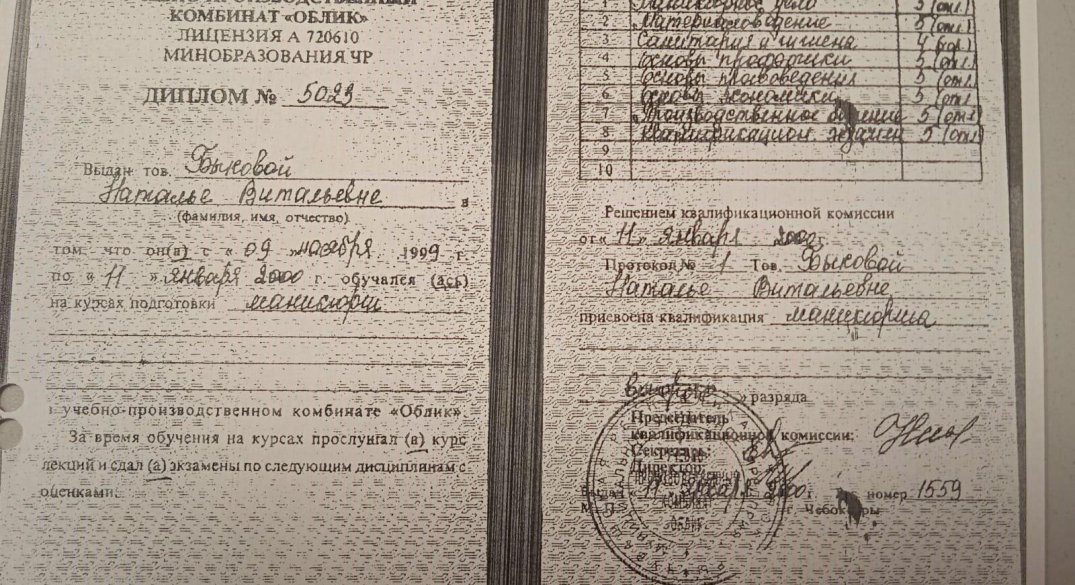 КОМБИНАТ «ОБЛИК»
ЛИЦЕНЗИЯ А 720610
МИНОБРАЗОВАНИЯ ЧР
ДИПЛОМ № 5023
Выдан тов. Быковой
Наталье Витальевне в
(фамилия, имя, отчество)
том, что он(а) с « 09 » ноября 1999 г.
по « 11 » января 2000 г. обучался (ась)
на курсах подготовки маникюрш
в учебно-производственном комбинате «Облик».
За время обучения на курсах прослушал (а) курс
лекций и сдал (а) экзамены по следующим дисциплинам с
оценками:
1 дело 5 (отл)
2 Материаловедение 5 (отл)
3 Санитария и гигиена 4 (хор.)
4 Основы 5 (отл)
5 Основы правоведения 5 (отл)
6 Основы экономики 5 (отл)
7 Производственное обучение 5 (отл)
8 5 (отл)
9
10
Решением квалификационной комиссии
от « 11 » января 2000г
Протокол № 1 Тов. Быковой
Наталье Витальевне
присвоена квалификация маникюрша
разряда
Председатель
квалификационной комиссии:
Секретарь:
Директор:
Выдан « 11 » января г. Рег. номер 1559
М. П. г. Чебоксары